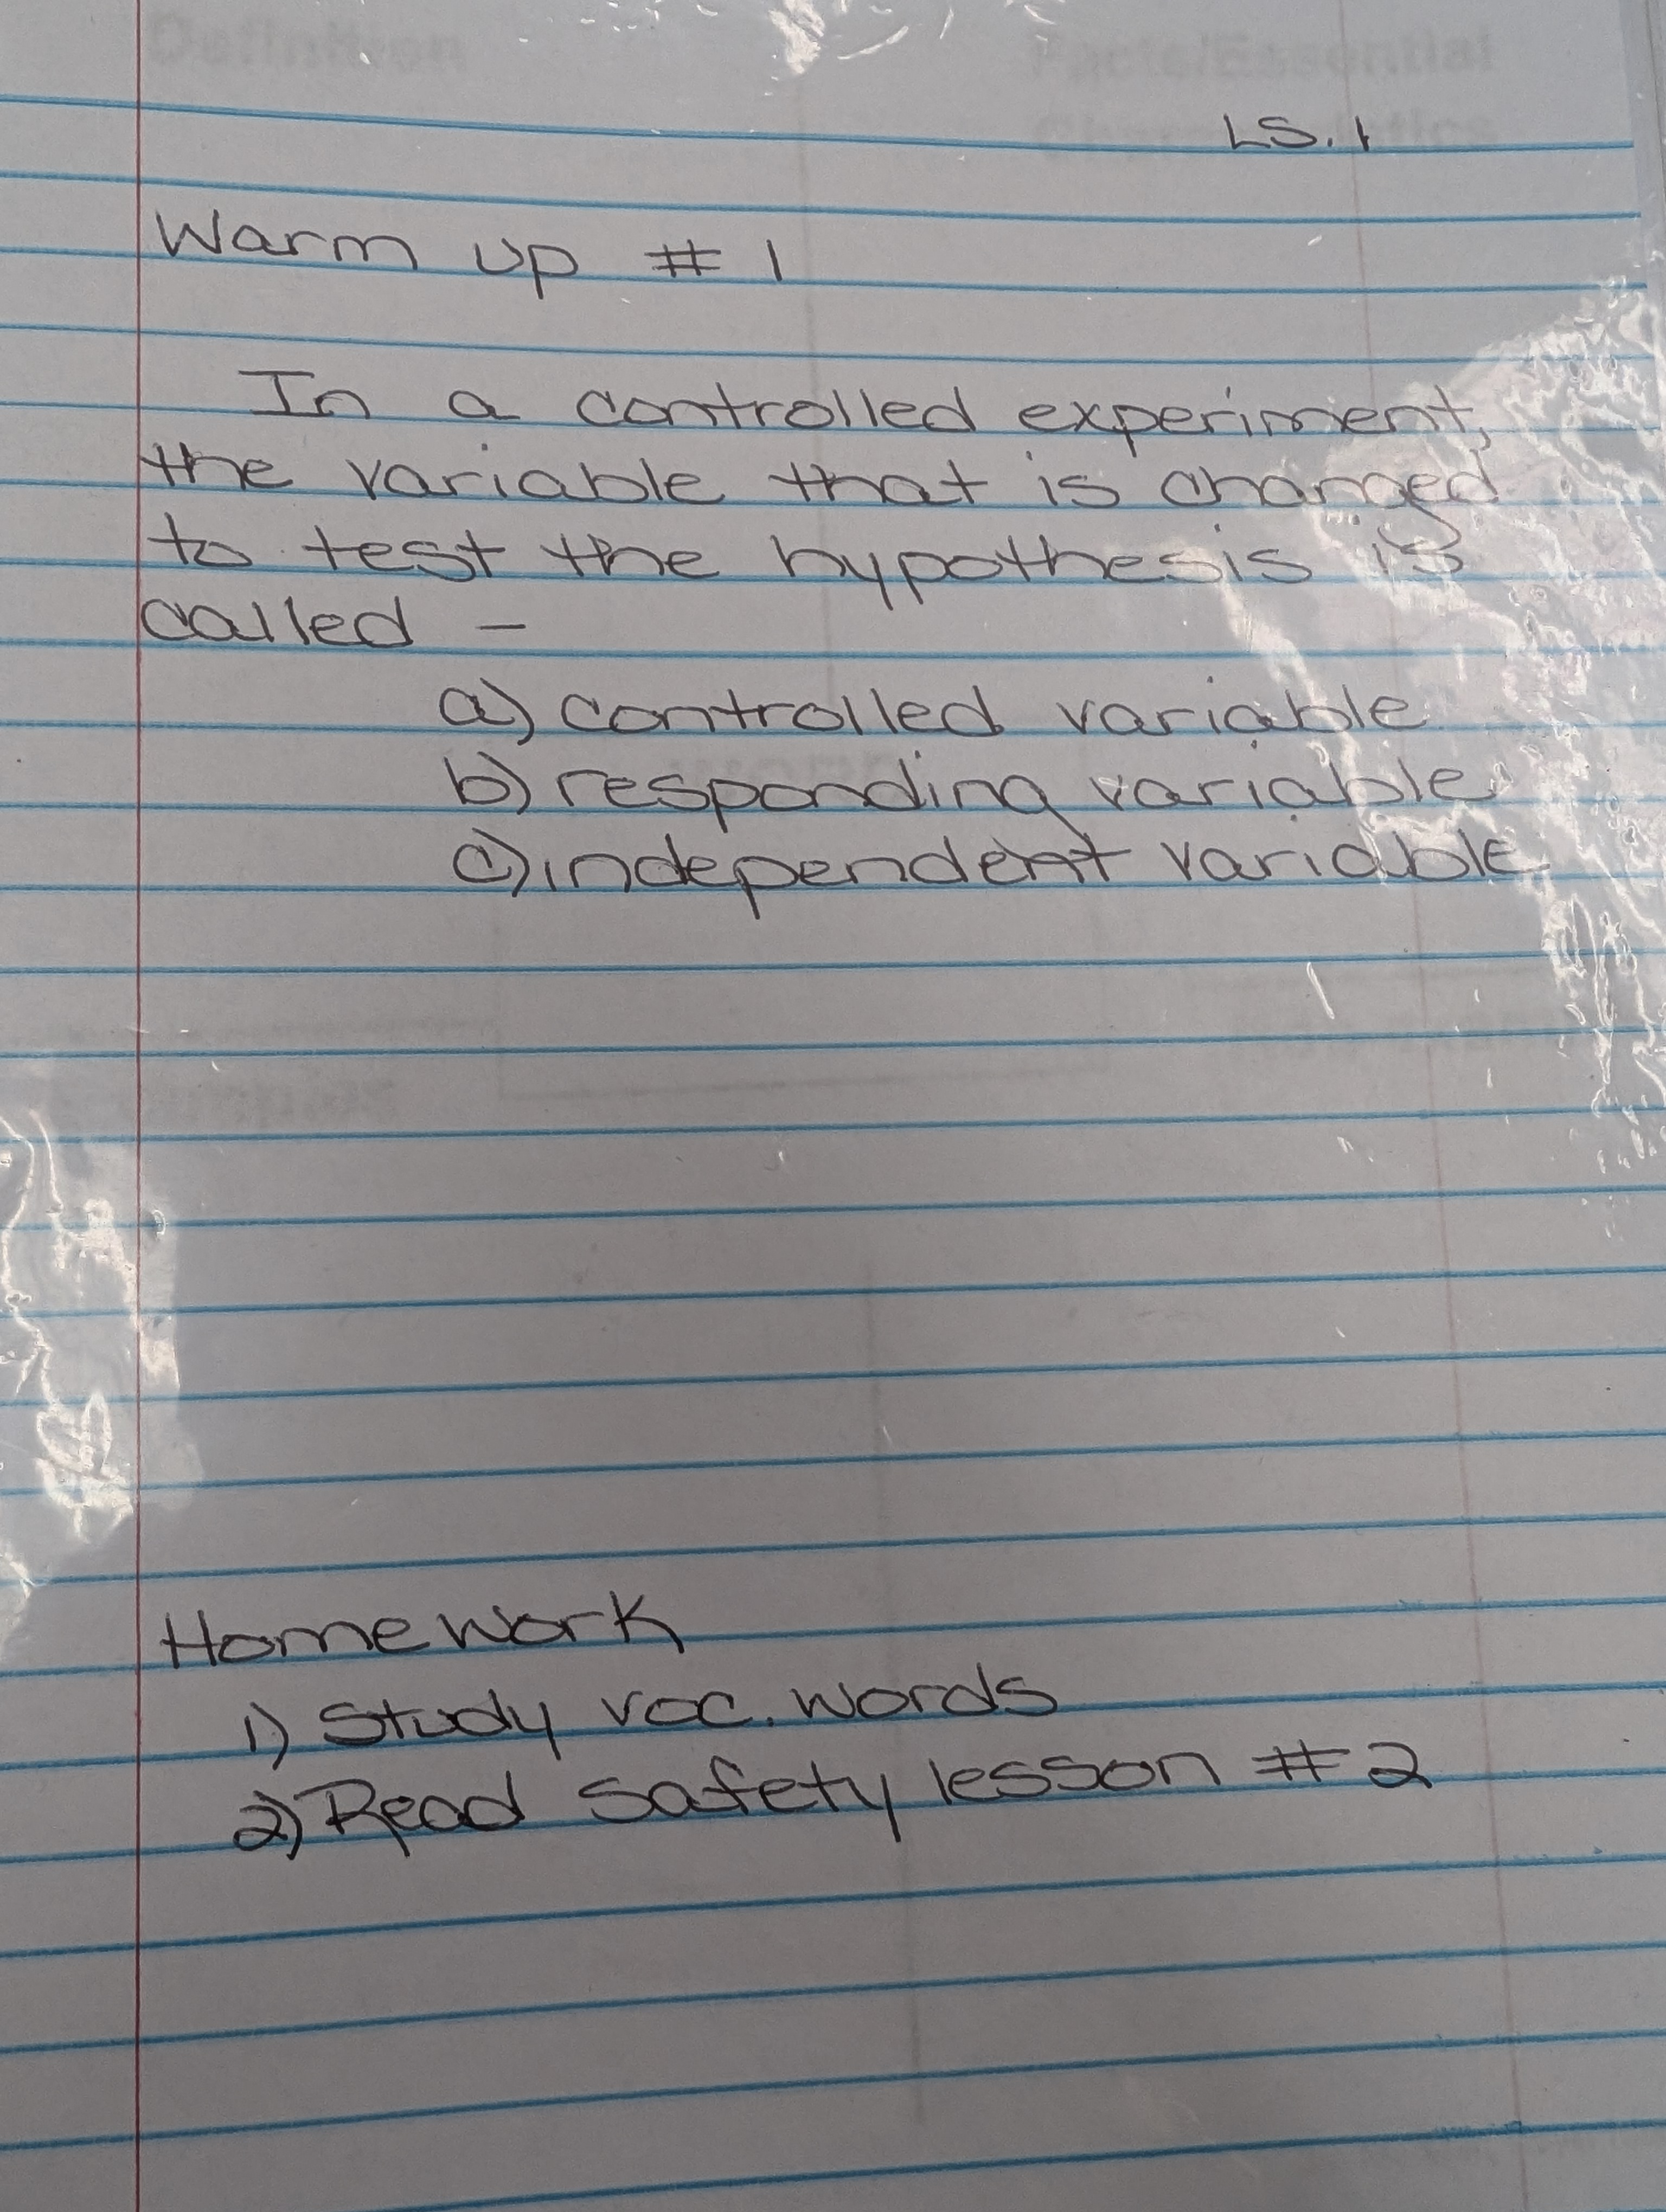 Definition
Facts/Essential
Characteristics
LS.1
Warm up # 1
In a controlled experiment,
the variable that is changed
to test the hypothesis is
called -
a) controlled variable
b) responding variable
c) independent variable
Homework
1) Study voc. words
2) Read safety lesson #2